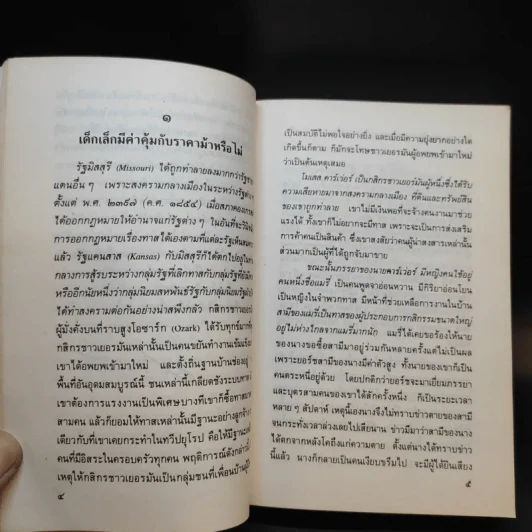 ๑
เด็กเล็กมีค่าคุ้มกับราคาม้าหรือไม่
รัฐมิสสุรี (Missouri) ได้ถูกทำลายลงมากกว่ารัฐชาย
แดนอื่น ๆ เพราะสงครามกลางเมืองในระหว่างรัฐต่าง ๆ
ตั้งแต่ พ.ศ. ๒๓๙๗ (ค.ศ. ๑๘๕๔) เมื่อสภาคองเกรส
ได้ออกกฎหมายให้อำนาจแก่รัฐต่าง ๆ ในอันที่จะวินิจ
การออกกฎหมายเรื่องทาสได้เองตามที่แต่ละรัฐเห็นสมควร
แล้ว รัฐแคนสาส (Kansas) กับมิสสุรีก็ได้ตกไปอยู่ใน
กลางการสู้รบระหว่างกลุ่มรัฐที่เลิกทาสกับกลุ่มรัฐที่ยังมี
หรืออีกนัยหนึ่งว่ากลุ่มนิยมสหพันธ์รัฐกับกลุ่มนิยมรัฐใต้
ได้ทำสงครามต่อกันอย่างน่าสพึงกลัว กสิกรชาวเยอร
ผู้มั่งคั่งบนที่ราบสูงโอซาร์ก (Ozark) ได้รับทุกข์มาก
กสิกรชาวเยอรมันเหล่านั้นเป็นคนขยันทำงานเข้มแข็ง
เขาได้อพยพเข้ามาใหม่ และตั้งถิ่นฐานบ้านช่องอยู่
พื้นที่อันอุดมสมบูรณ์นี้ ชนเหล่านี้เกลียดชังระบบทาส
เขาต้องการแรงงานเป็นพิเศษบางทีเขาก็ซื้อทาสมา
สามคน แล้วก็ยอมให้ทาสเหล่านั้นมีฐานะอย่างลูกจ้าง
เดียวกับที่เขาเคยกระทำในทวีปยุโรป คือให้มีฐานะ
คนที่มีอิสระในครอบครัวทุกคน พฤติการณ์ดังกล่าว
เหตุให้กสิกรชาวเยอรมันเป็นกลุ่มชนที่เพื่อนบ้าน
๔
เป็นสมบัติไม่พอใจอย่างยิ่ง และเมื่อมีความยุ่งยากอย่างใด
เกิดขึ้นก็ตาม ก็มักจะโทษชาวเยอรมันผู้อพยพเข้ามาใหม่
ว่าเป็นต้นเหตุเสมอ
โมเสส คาร์เวอร์ เป็นกสิกรชาวเยอรมันผู้หนึ่งซึ่งได้รับ
ความเสียหายมาจากสงครามกลางเมือง ที่ดินและทรัพย์สิน
ของเขาถูกทำลาย เขาไม่มีเงินพอที่จะจ้างคนงานมาช่วย
แรงได้ ทั้งเขาก็ไม่อยากจะมีทาส เพราะจะเป็นการส่งเสริม
การค้าคนเป็นสินค้า ซึ่งเขาสงสัยว่าคนผู้น่าสงสารเหล่านั้น
ส่วนมากเป็นผู้ที่ได้ถูกจับมาขาย
ขณะนั้นภรรยาของนายคาร์เวอร์ มีหญิงคนใช้อยู่
คนหนึ่งชื่อแมรี่ เป็นคนพูดจาอ่อนหวาน มีกิริยาอ่อนโยน
เป็นหญิงในจำพวกทาส มีหน้าที่ช่วยเหลือการงานในบ้าน
สามีของแมรี่เป็นทาสของผู้ประกอบการกสิกรรมขนาดใหญ่
อยู่ไม่ห่างไกลจากแมรี่มากนัก แมรี่ได้เคยขอร้องให้นาย
ของนางขอซื้อสามีมาอยู่ร่วมกันหลายครั้งแต่ไม่เป็นผล
เพราะเบอร์สามีของนางมีค่าตัวสูง ทั้งนายของเขาก็เป็น
คนตระหนี่อยู่ด้วย โดยปกติกว่าเบอร์ซจะมาเยี่ยมภรรยา
และบุตรสามคนของเขาได้สักครั้งหนึ่ง ก็เป็นระยะเวลา
หลาย ๆ สัปดาห์ เหตุนี้เองนางจึงไม่ทราบข่าวตายของสามี
จนกระทั่งเวลาล่วงเลยไปเสียนาน ข่าวมีมาว่าสามีของนาง
ได้ตกจากหลังโคถึงแก่ความตาย ตั้งแต่นางได้ทราบข่าว
นี้แล้ว นางก็กลายเป็นคนเงียบขรึมไป จะมีผู้ได้ยินเสียง
๕